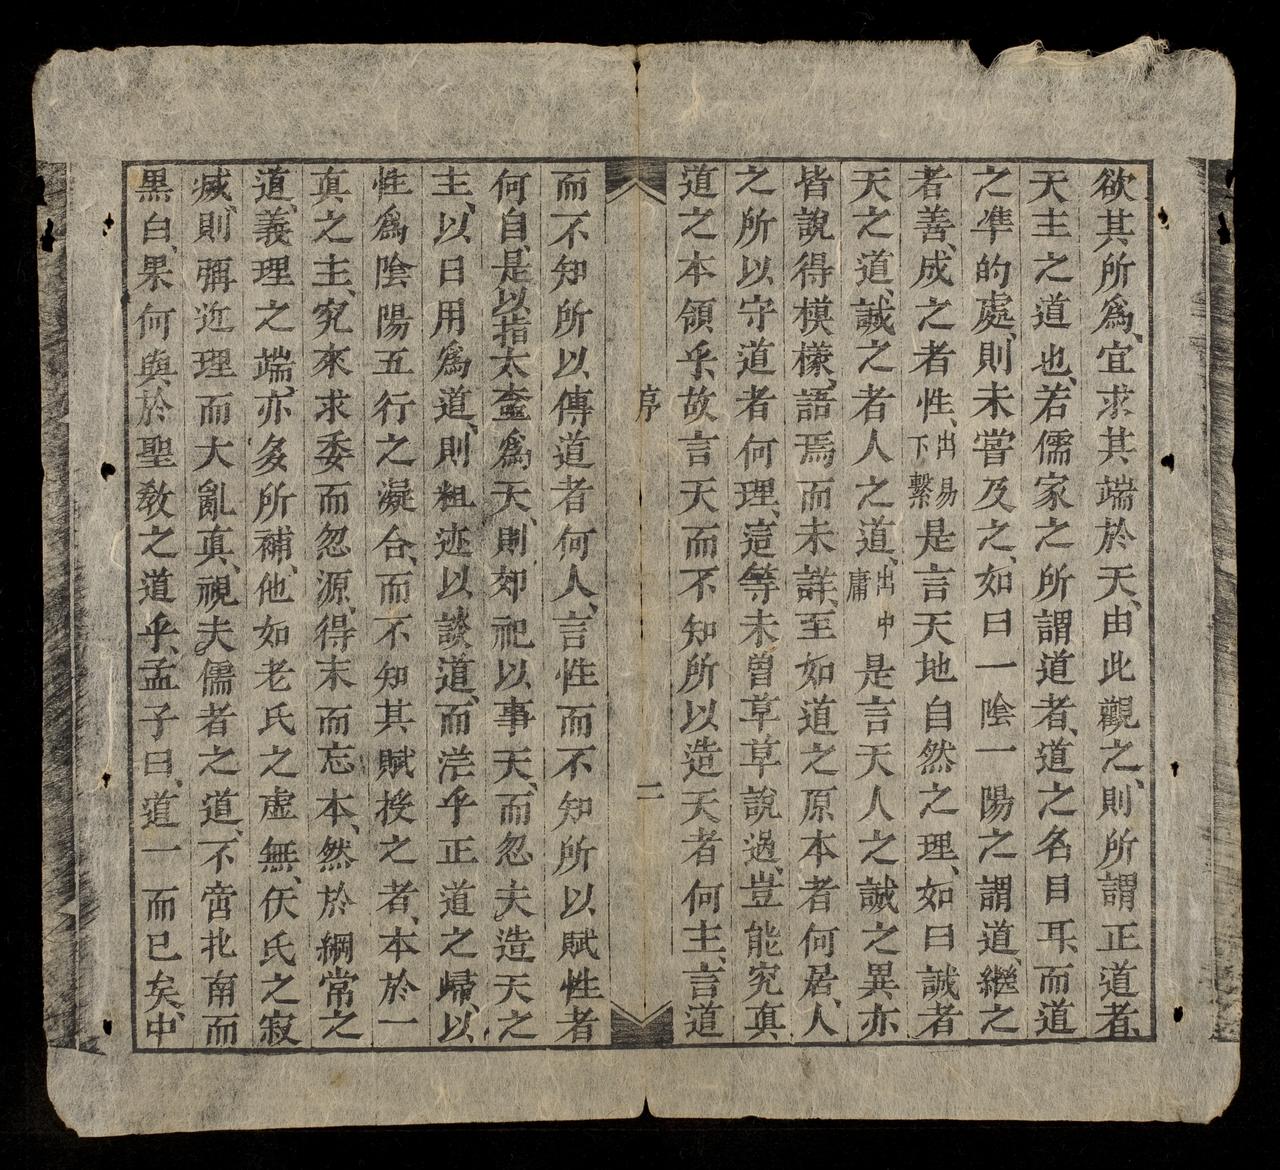 欲其所爲、宜求其端於天、由此觀之、則所謂正道者、
天主之道也、若儒家之所謂道者、道之名目耳、而道
之準的處、則未嘗及之、如曰一陰一陽之謂道、繼之
者善、成之者性、出易下繫是言天地自然之理、如曰誠者
天之道、誠之者人之道、出中庸是言天人之誠之異、亦
皆說得模檬、語焉而未詳、至如道之原本者何居、人
之所以守道者何理、這等未曾草草說過、豈能究真
道之本領乎、故言天而不知所以造天者何主、言道
序
二
而不知所以傳道者何人、言性而不知所以賦性者
何自、是以指太臺爲天、則郊祀以事天、而忽夫造天之
主、以日用爲道、則粗迹以談道、而茫乎正道之歸、以
性爲陰陽五行之凝合、而不知其賦授之者、本於一
真之主、究來求委而忽源、得末而忘本、然於綱常之
道、義理之端、亦多所補、他如老氏之虛無、仸氏之寂
滅、則彌近理而大亂真、視夫儒者之道、不啻北南而
黑白、果何與於聖教之道乎、孟子曰、道一而已矣、中